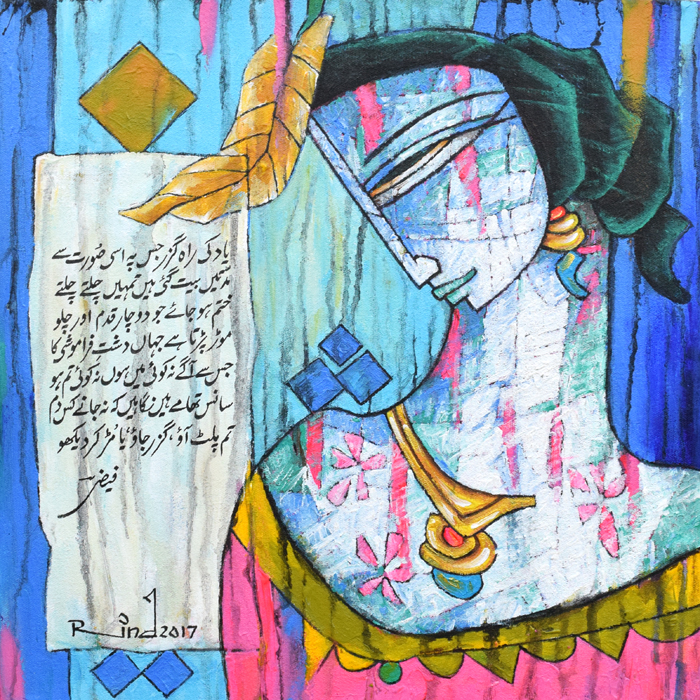 یاد کی راہ گزر جس پہ اسی صورت سے
مدتیں بیت گئی ہیں تمہیں چلتے چلتے
ختم ہو جائے جو دو چار قدم اور چلو
موڑ پڑتا ہے جہاں دشت فراموشی کا
جس سے آگے نہ کوئی میں ہوں نہ کوئی تم ہو
سانس تھامے ہیں نگاہیں کہ نہ جانے کس دم
تم پلٹ آؤ، گزر جاؤ، یا مڑ کر دیکھو
فیض
Rind 2017